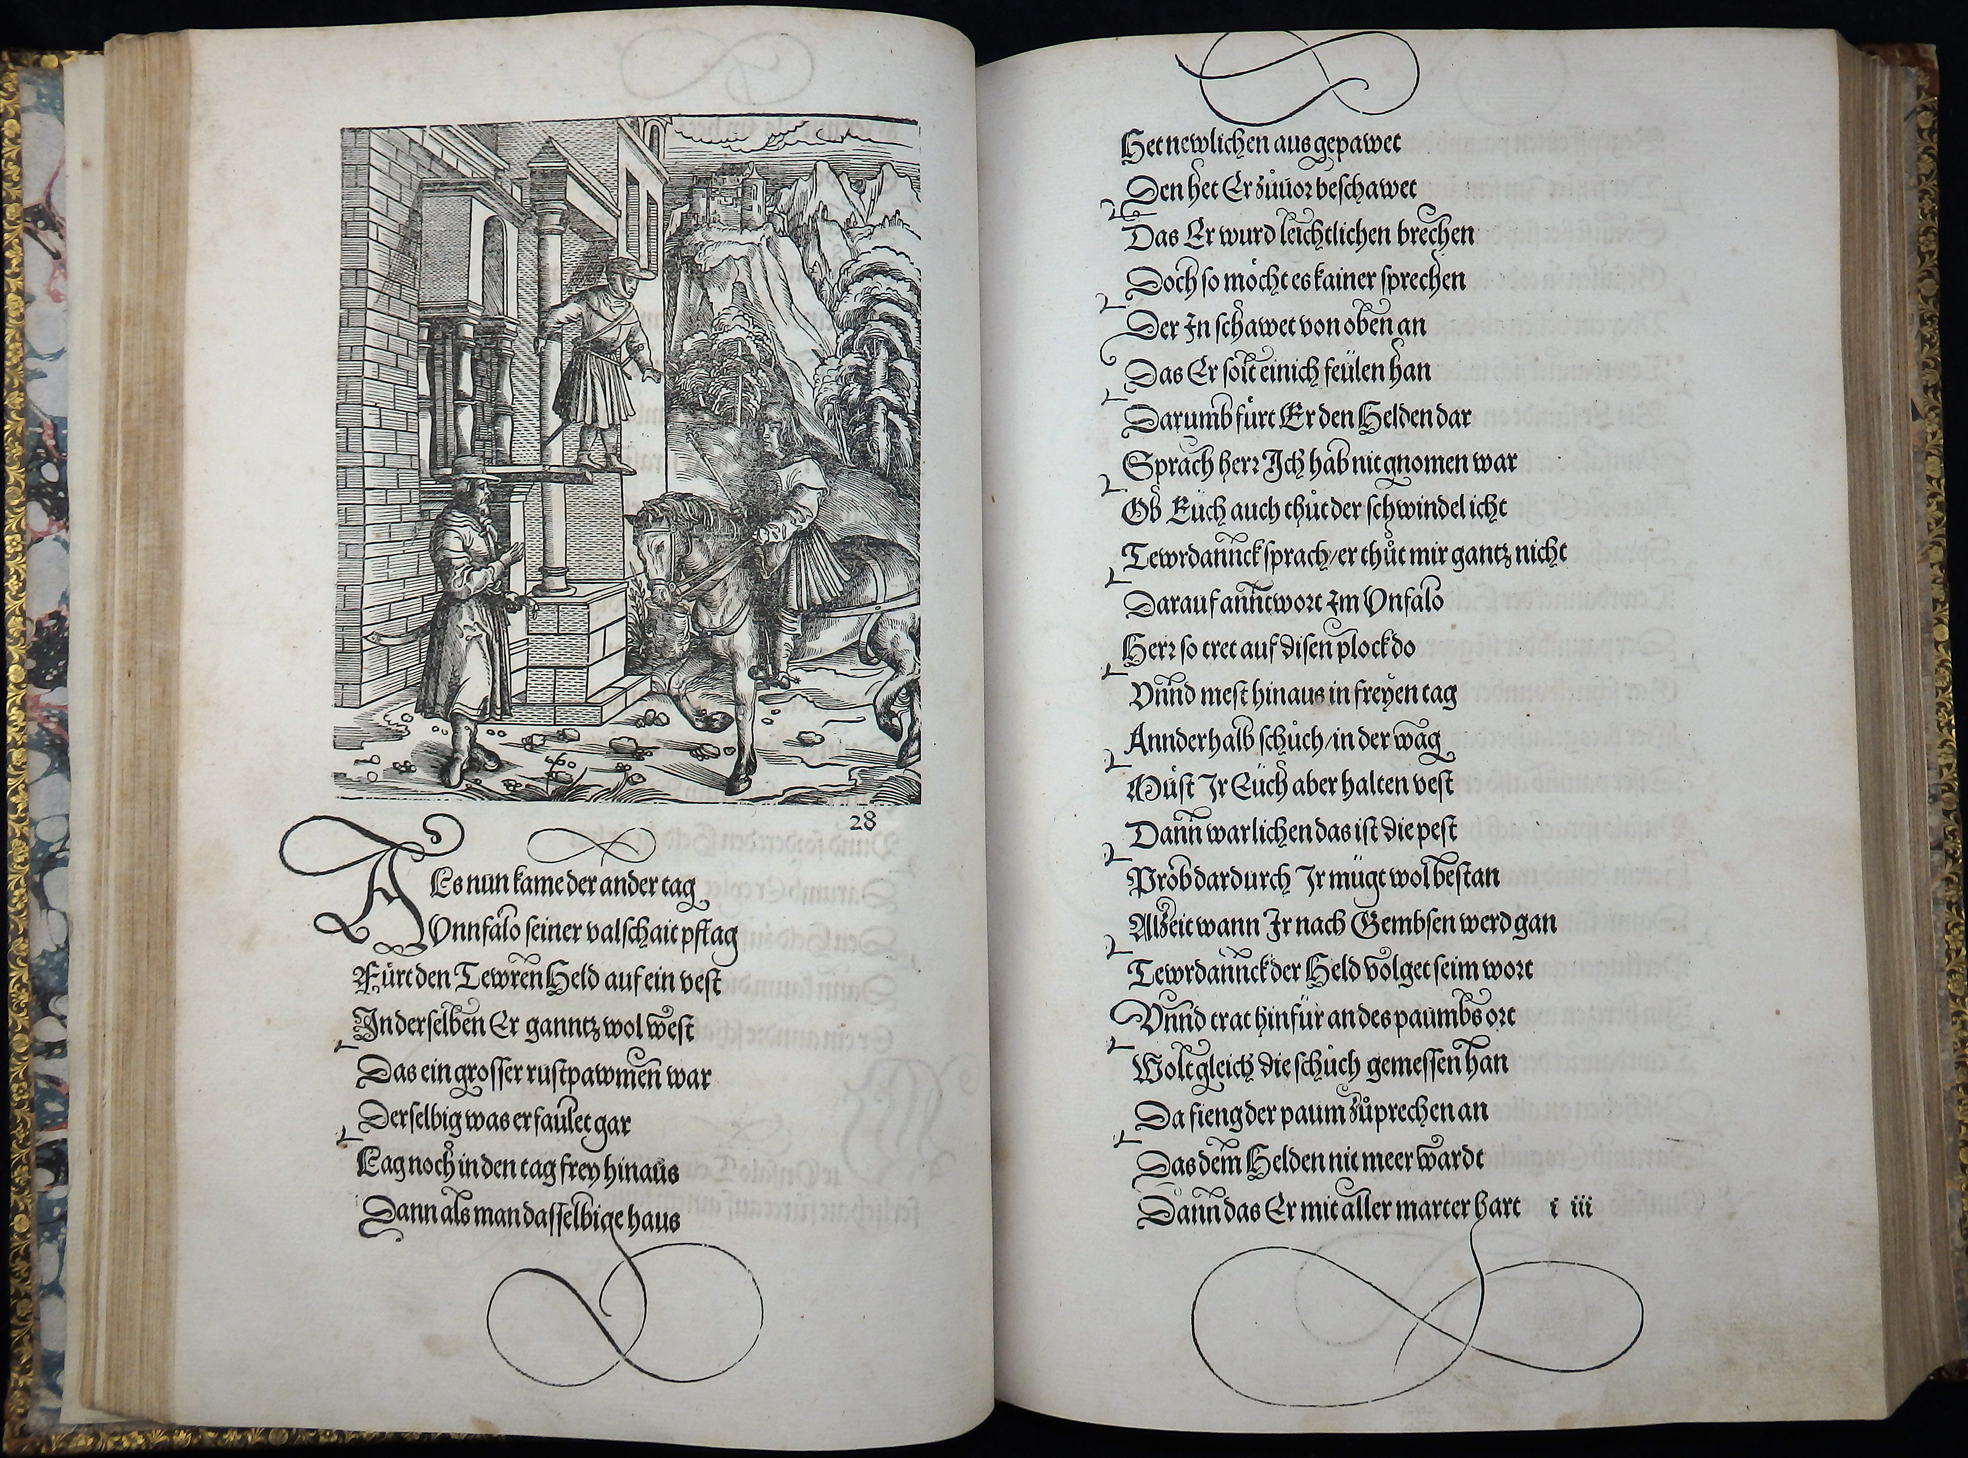 28
Als nun kame der ander tag
Vnnfalo seiner valschait pflag
Fürt den Tewren Held auf ein vest
In derselben Er ganntz wol west
Das ein grosser rustpawmen war
Derselbig was erfaulet gar
Lag noch in den tag frey hinaus
Dann als man dasselbige haus
Het newlichen ausgepawet
Den het Er züuor beschawet
Das Er wurd leichtlichen brechen
Doch so möcht es kainer sprechen
Der In schawet von oben an
Das Er solt einich feülen han
Darumb fürt Er den Helden dar
Sprach herr Ich hab nit gnomen war
Ob Euch auch thůt der schwindel icht
Tewrdannck sprach/er thůt mir gantz nicht
Darauf anntwort Im Vnfalo
Herr so tret auf disen plock do
Vnnd mest hinaus in freyen tag
Annderhalb schůch/in der wag
Müst Ir Eüch aber halten vest
Dann warlichen das ist die pest
Prob dardurch Ir mügt wol bestan
Alzeit wann Ir nach Gembsen werd gan
Tewrdannck der Held volget seim wort
Vnnd trat hinfür an des paumbs ort
Wolt gleich die schůch gemessen han
Da fieng der paum zůprechen an
Das dem Helden nit meer wardt
Dann das Er mit aller marter hart i iii